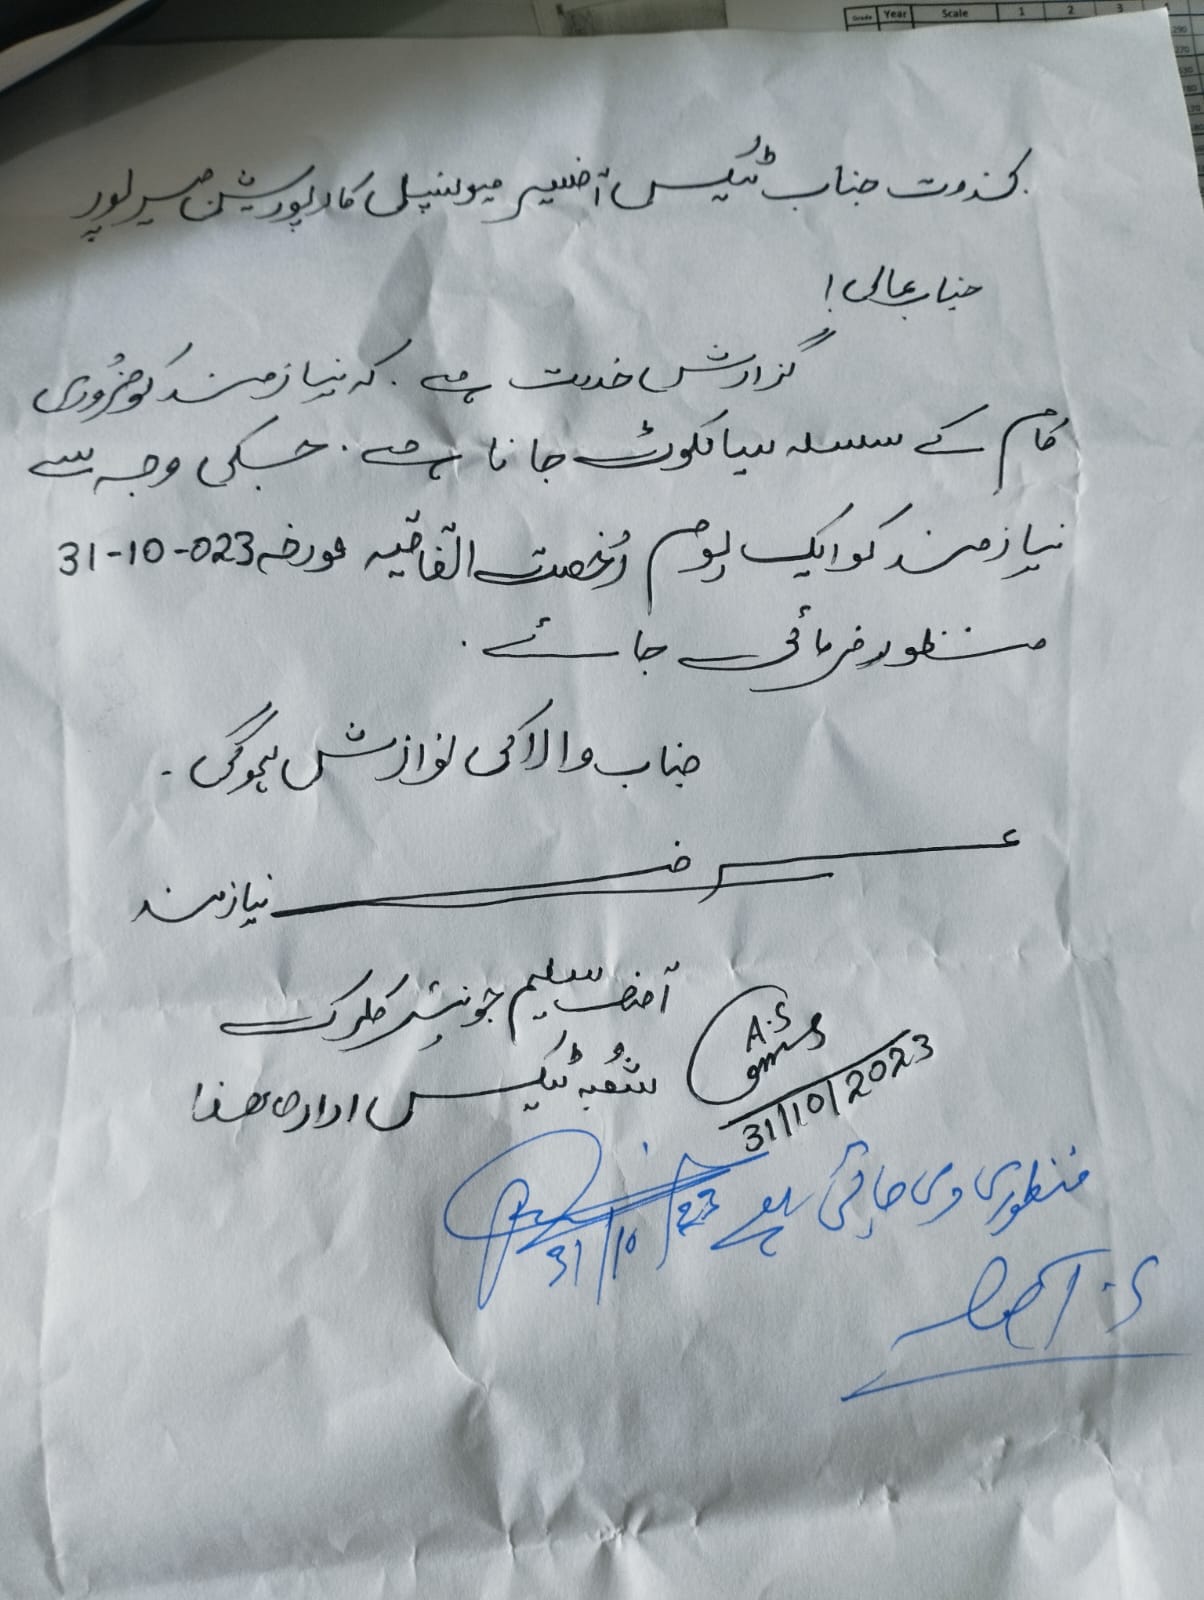 Grade Year Scale 1 2 3
بخدمت جناب ٹیکس آفیسر میونسپل کارپوریشن میرپور
جناب عالی!
گزارش خدمت ہے۔ کہ نیازمند کو ضروری
کام کے سلسلہ سیالکوٹ جانا ہے۔ جسکی وجہ سے
نیازمند کو ایک یوم رُخصت اتفاقیہ مورخہ 31-10-023
منظور فرمائی جائے۔
جناب والا کی نوازش ہوگی۔
عرضے
نیازمند
آصف سلیم جونیئر کلرک
شُعبہ ٹیکس ادارہ ھذا
A.S
31/10/2023
منظوری دی جاتی ہے
31/10/23